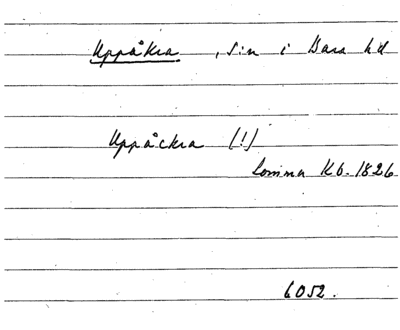 Uppåkra, s:n i Bara hd
Uppåckra (!)
Lomma Kb. 1826
6052.